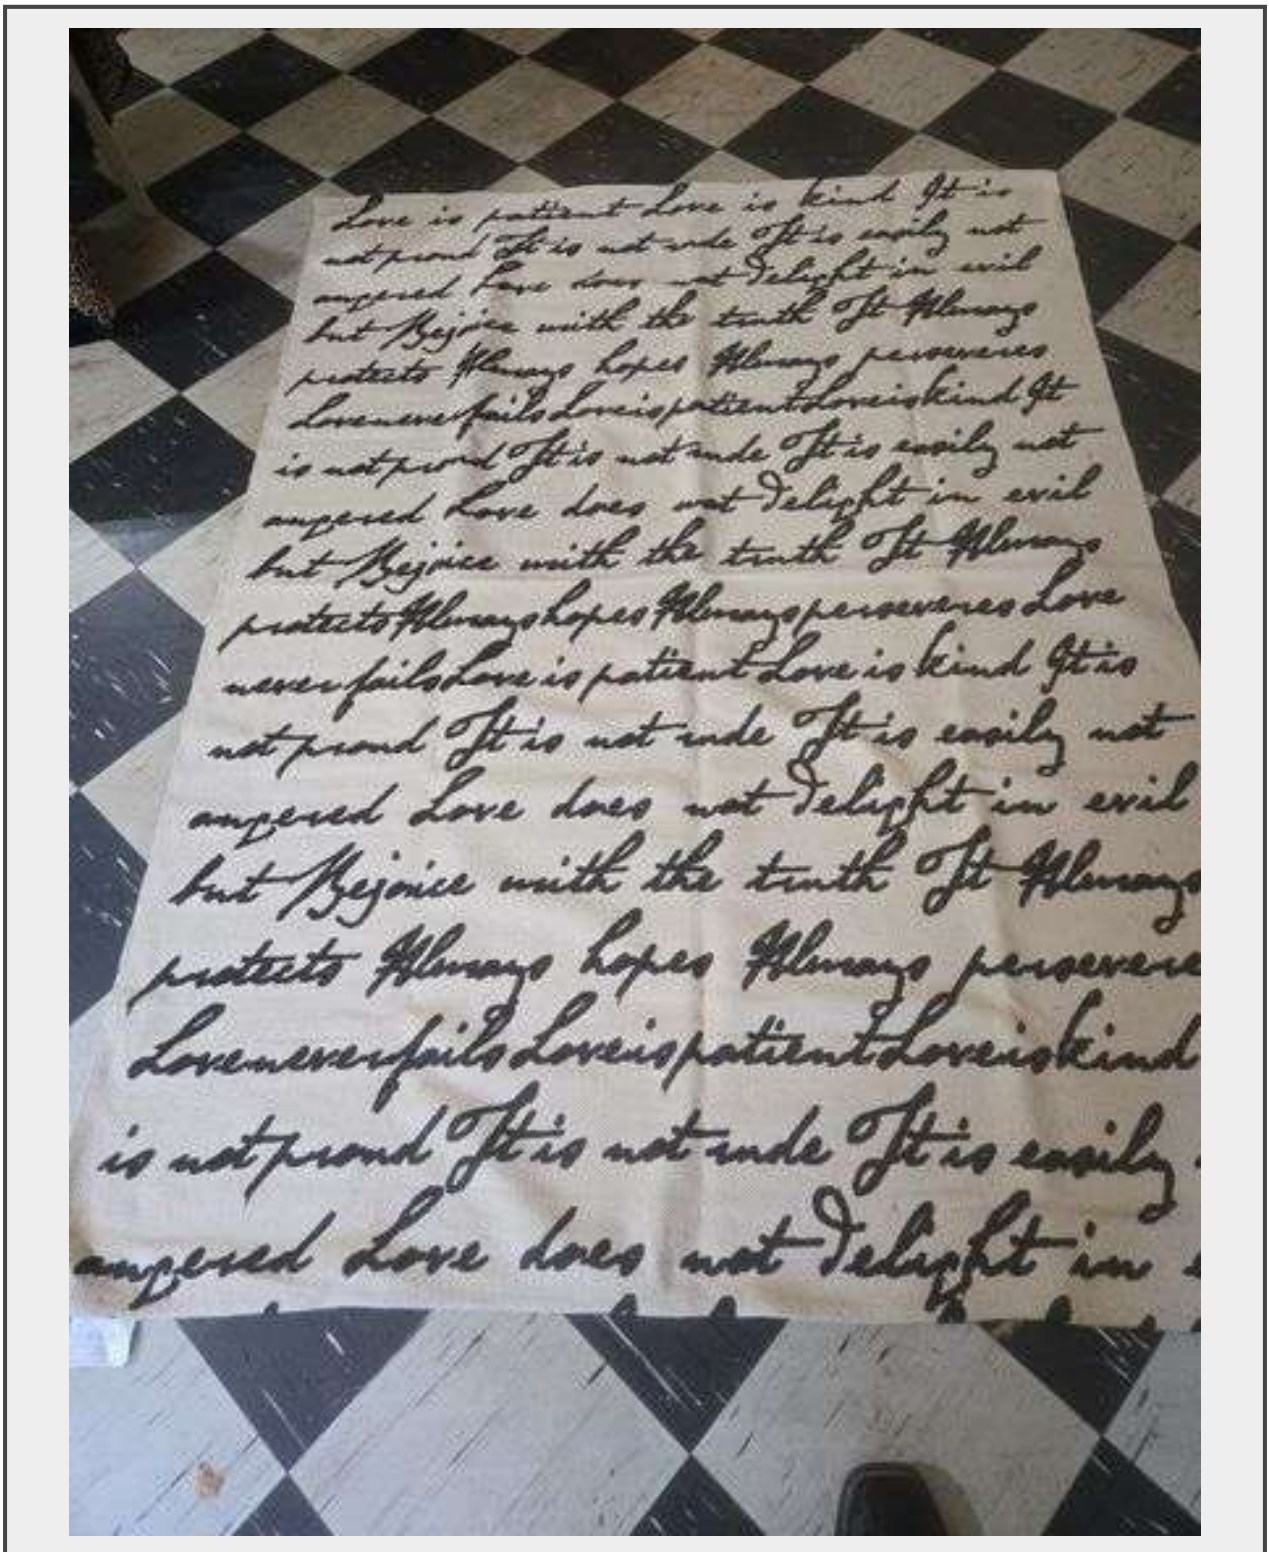 Love is patient Love is kind It is
not proud It is not rude It is easily not
angered Love does not Delight in evil
but Rejoice with the truth It Always
protects Always hopes Always perseveres
Love never fails Love is patient Love is kind It
is not proud It is not rude It is easily not
angered Love does not Delight in evil
but Rejoice with the truth It Always
protects Always hopes Always perseveres Love
never fails Love is patient Love is kind It is
not proud It is not rude It is easily not
angered Love does not Delight in evil
but Rejoice with the truth It Always
protects Always hopes Always persevere
Love never fails Love is patient Love is kind
is not proud It is not rude It is easily
angered Love does not Delight in